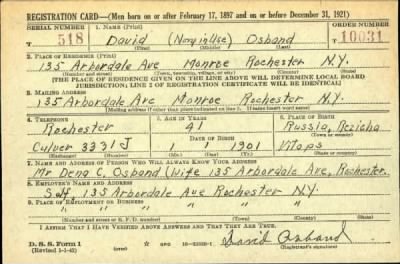 REGISTRATION CARD—(Men born on or after February 17, 1897 and on or before December 31, 1921)
SERIAL NUMBER 1. NAME (Print) ORDER NUMBER
T 518 David (None in Use) Osband T 10031
(First) (Middle) (Last)
2. PLACE OF RESIDENCE (Print)
135 Arbordale Ave Monroe Rochester N.Y.
(Number and street) (Town, township, village, or city) (County) (State)
[THE PLACE OF RESIDENCE GIVEN ON THE LINE ABOVE WILL DETERMINE LOCAL BOARD
JURISDICTION; LINE 2 OF REGISTRATION CERTIFICATE WILL BE IDENTICAL]
3. MAILING ADDRESS
135 Arbordale Ave Monroe Rochester N.Y.
[Mailing address if other than place indicated on line 2. If same insert word same]
4. TELEPHONE 5. AGE IN YEARS 6. PLACE OF BIRTH
Rochester 41 Russia,
DATE OF BIRTH
Culver 3331 J 1 1 1901
(Exchange) (Number) (Mo.) (Day) (Yr.) (State or country)
7. NAME AND ADDRESS OF PERSON WHO WILL ALWAYS KNOW YOUR ADDRESS
Mr Dena C. Osband (wife 135 Arbordale Ave, Rochester.
8. EMPLOYER'S NAME AND ADDRESS
Self, 135 Arbordale Ave Rochester N.Y.
9. PLACE OF EMPLOYMENT OR BUSINESS
(Number and street or R. F. D. number) (Town) (County) (State)
I AFFIRM THAT I HAVE VERIFIED ABOVE ANSWERS AND THAT THEY ARE TRUE.
D. S. S. Form 1
(Revised 1-1-42) GPO David Osband
(Registrant's signature)